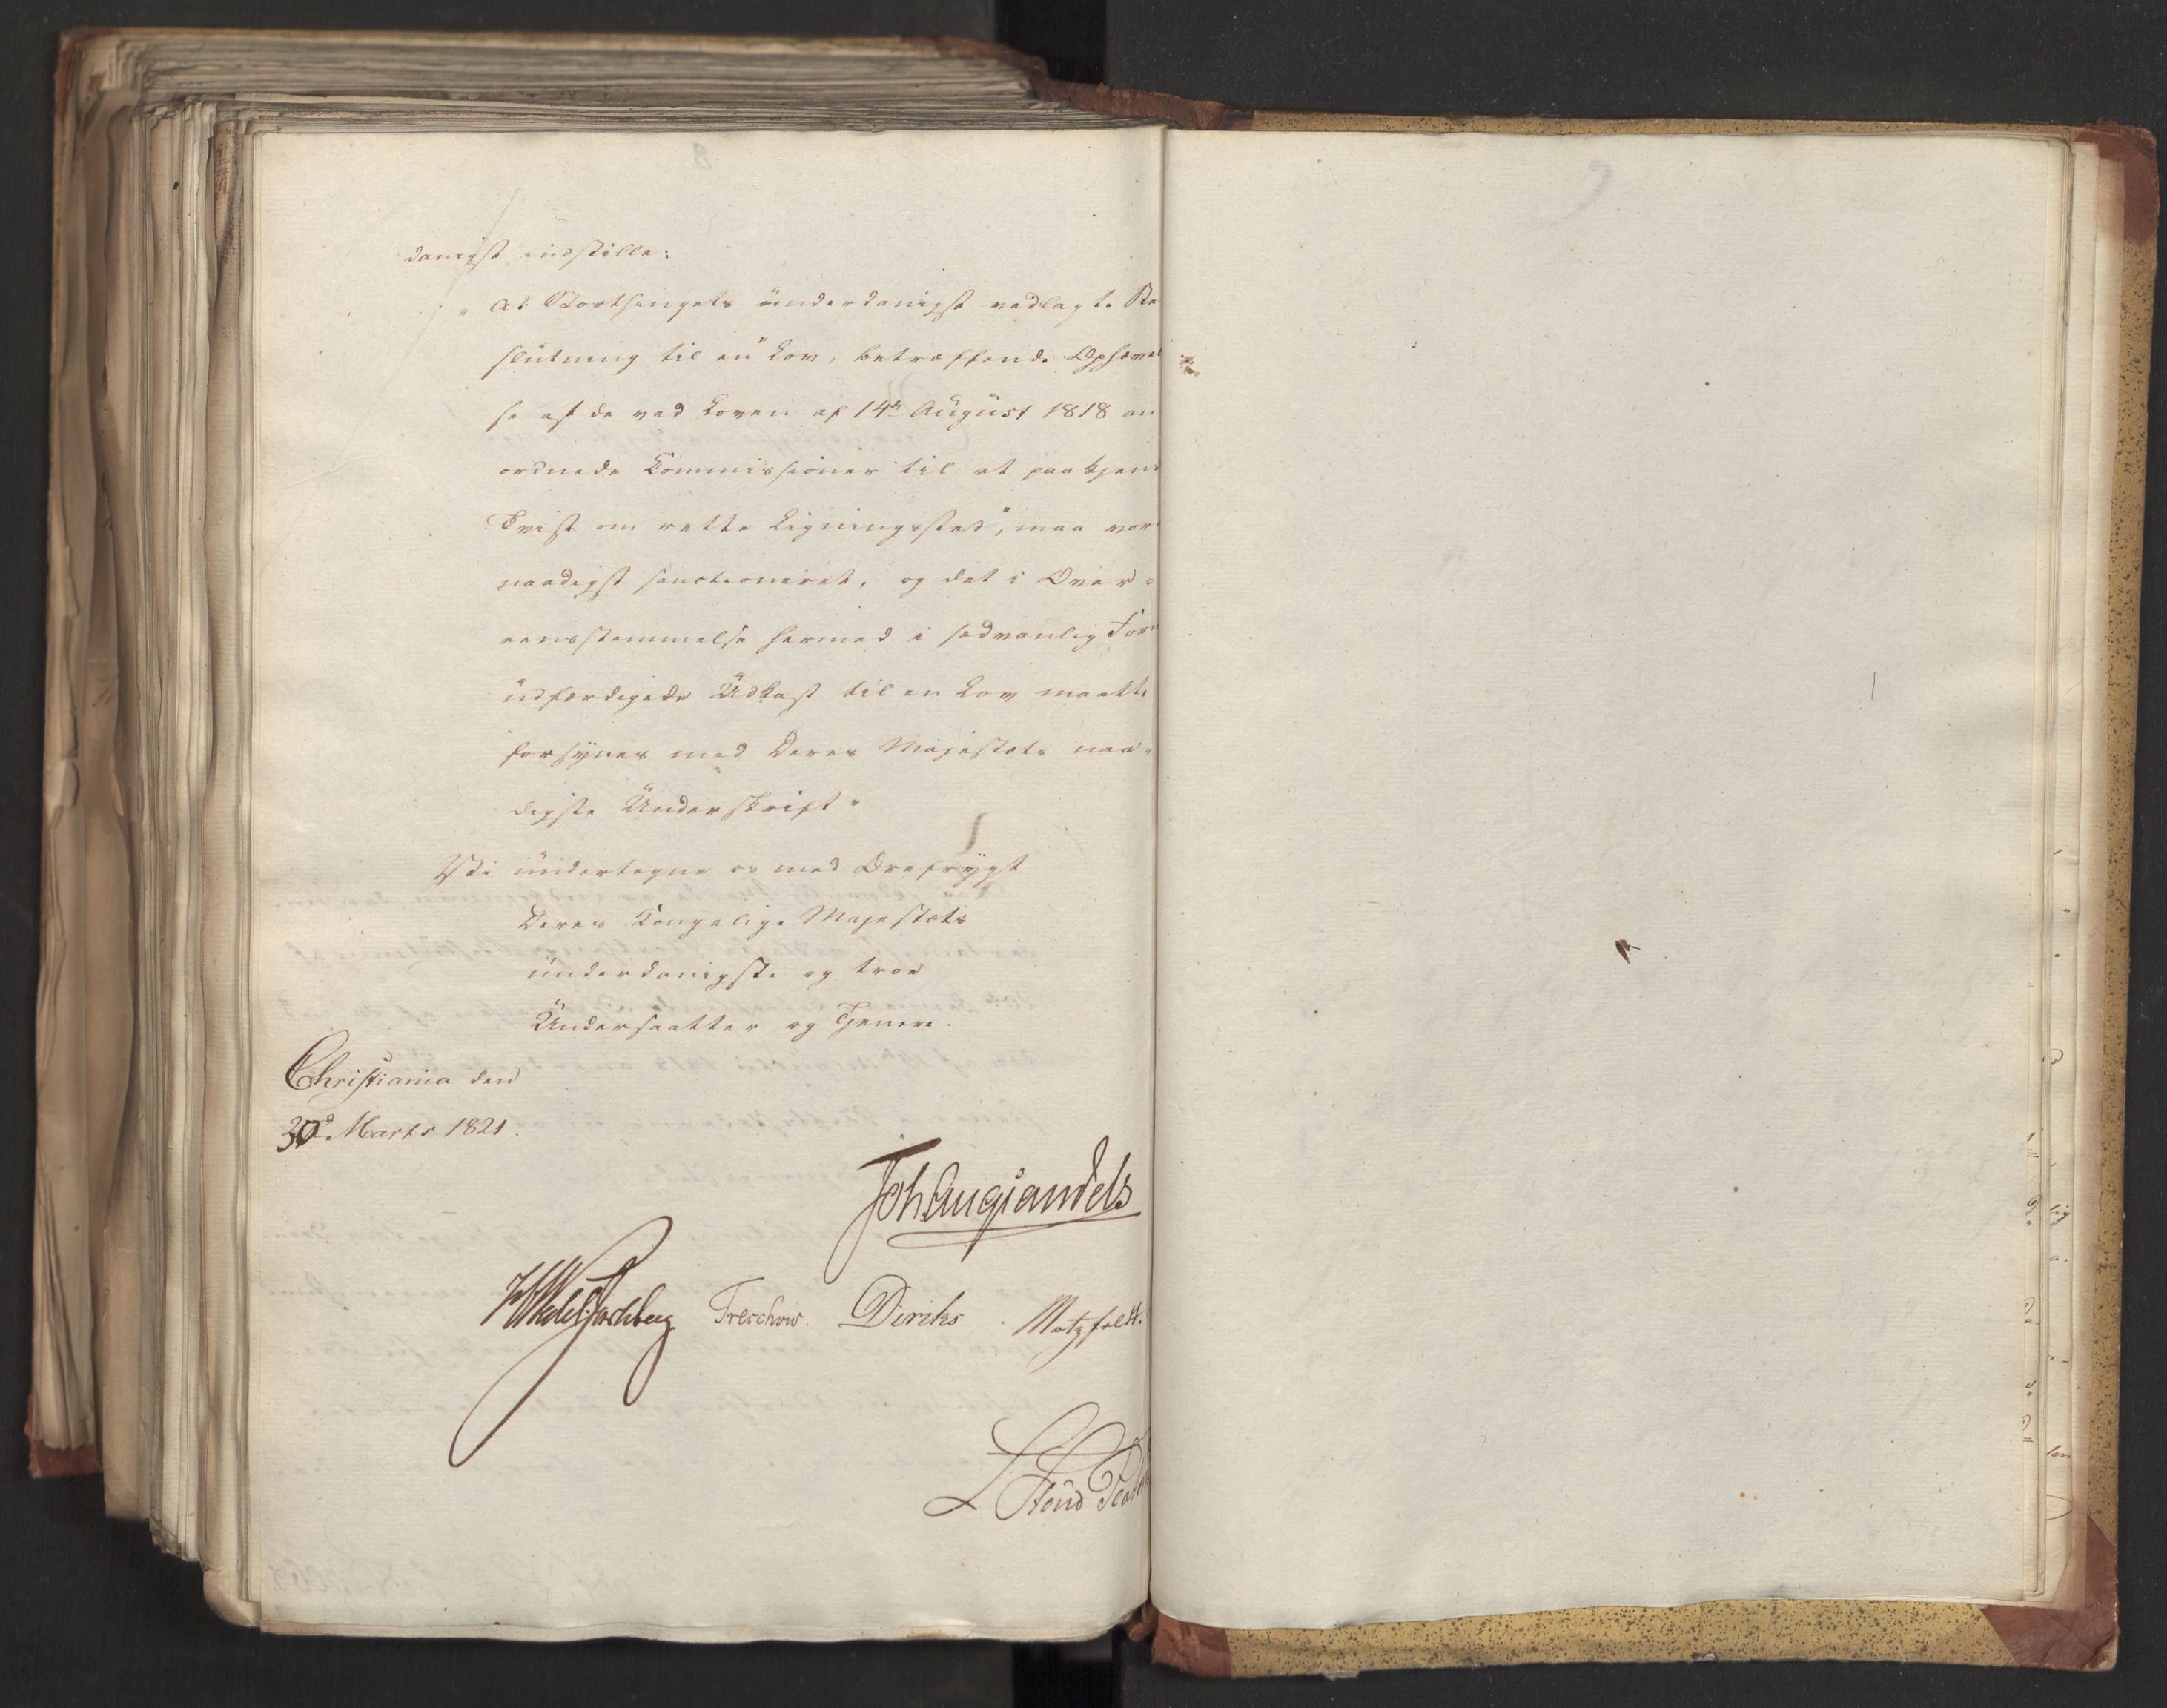 danigst indstille:
„At Storthingets underdanigst vedlagte Be
slutning til en Lov, betræffende Ophævel
se af de ved Loven af 14de August 1818 an
ordnede Commissioner til at paakjend
Tvist om rette Ligningssted", maa vor
naadigst sanctioneret, og det i Over-
eensstemmelse hermed i sædvanlig Form
udfærdigede Udkast til en Lov maatte
forsynes med Deres Majestæts naa-
digste Underskrift.
Vi undertegne os med Ærefrygt
Deres Kongelige Majestæts
underdanigste og troe
Undersaatter og Tjenere.
Christiania den
30d Marts 1821.
Joh Aug Sandels
Treschow. Diriks Motzfeldt.
L